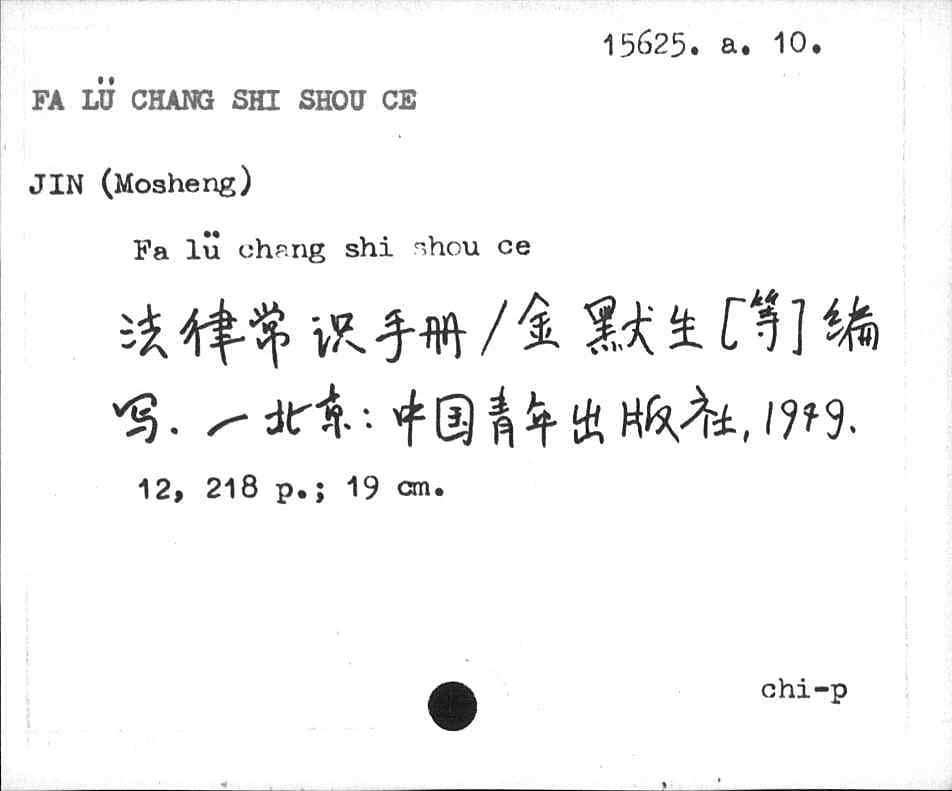 15625. a. 10.
FA LÜ CHANG SHI SHOU CE
JIN (Mosheng)
Fa lü chang shi shou ce
法律常识手册/金默生[等]编
写. — 北京: 中国青年出版社, 1979.
12, 218 p.; 19 cm.
chi-p